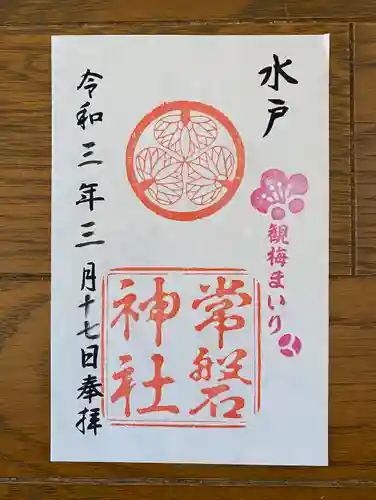 水戸
観梅まいり
常磐
神社
令和三年三月十七日奉拝